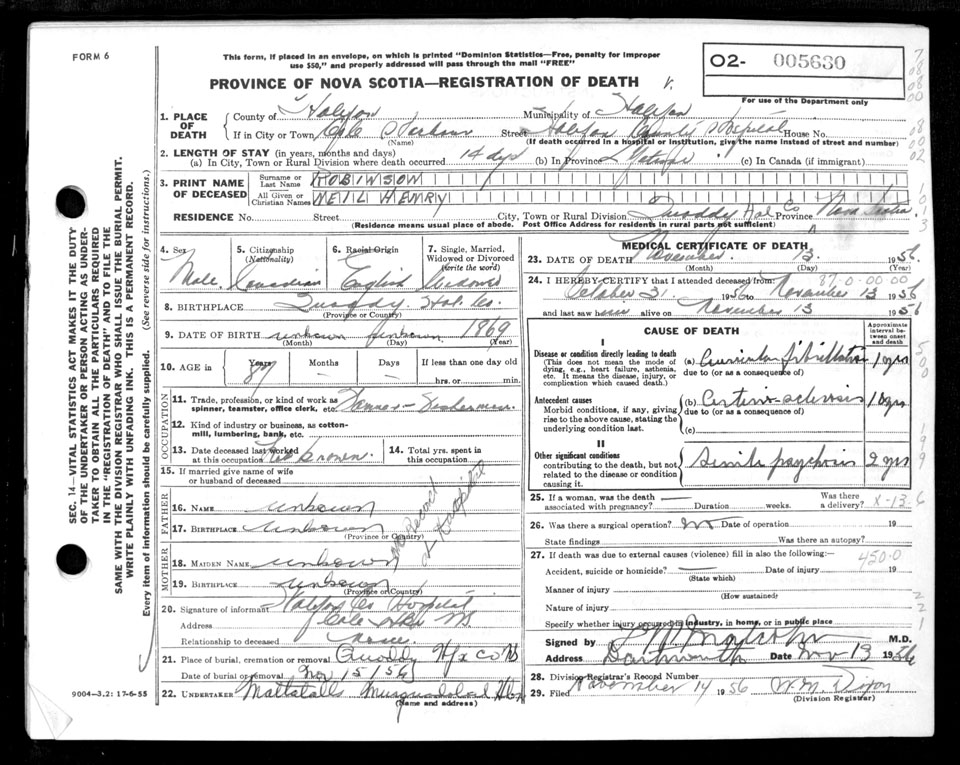 FORM 6
This form, if placed in an envelope, on which is printed "Dominion Statistics—Free, penalty for improper
use $50," and properly addressed will pass through the mail "FREE"
PROVINCE OF NOVA SCOTIA—REGISTRATION OF DEATH
O2- 005630
For use of the Department only
1. PLACE OF DEATH
County of Halifax Municipality of Halifax
If in City or Town Cole Harbour Street Halifax County Hospital House No.
(Name) (If death occurred in a hospital or institution, give the name instead of street and number)
2. LENGTH OF STAY (in years, months and days)
(a) In City, Town or Rural Division where death occurred 14 dys (b) In Province Lifetime (c) In Canada (if immigrant)
3. PRINT NAME OF DECEASED
Surname or Last Name ROBINSON
All Given or Christian Names NEIL HENRY
RESIDENCE No. Street City, Town or Rural Division Quoddy Hal Co Province Nova Scotia
(Residence means usual place of abode. Post Office Address for residents in rural parts not sufficient)
4. Sex Male
5. Citizenship (Nationality) Canadian
6. Racial Origin English
7. Single, Married, Widowed or Divorced (write the word) Widowed
8. BIRTHPLACE Quoddy. Hal. Co.
(Province or Country)
9. DATE OF BIRTH unknown unknown 1869
(Month) (Day) (Year)
10. AGE in Years 87 Months — Days — If less than one day old
hrs. or min.
OCCUPATION
11. Trade, profession or kind of work as
spinner, teamster, office clerk, etc. Farmer - Fisherman
12. Kind of industry or business, as cotton-
mill, lumbering, bank, etc.
13. Date deceased last worked
at this occupation Unknown.
14. Total yrs. spent in
this occupation
15. If married give name of wife
or husband of deceased
FATHER
16. Name unknown
17. BIRTHPLACE unknown
(Province or Country)
MOTHER
18. MAIDEN NAME unknown
19. BIRTHPLACE unknown
(Province or Country)
Record
Hospital
20. Signature of informant Halifax Co Hospital
Address Cole Hbr NS
Relationship to deceased none
21. Place of burial, cremation or removal Quoddy Hfx Co NS
Date of burial or removal Nov 15/56
22. UNDERTAKER Mattatalls Musquodoboit Hbr
(Name and address)
MEDICAL CERTIFICATE OF DEATH
23. DATE OF DEATH November 13 1956
(Month) (Day) (Year)
24. I HEREBY CERTIFY that I attended deceased from 87-0-00.00
October 31 1956 to November 13 1956
and last saw him alive on November 13 1956
CAUSE OF DEATH
Approximate interval between onset and death
I
Disease or condition directly leading to death
(This does not mean the mode of
dying, e.g., heart failure, asthenia,
etc. It means the disease, injury, or
complication which caused death.)
(a) Auricular fibrillation 1 yrs
due to (or as a consequence of)
Antecedent causes
Morbid conditions, if any, giving
rise to the above cause, stating the
underlying condition last.
(b) Arterio-sclerosis 10 yrs
due to (or as a consequence of)
(c)
II
Other significant conditions
contributing to the death, but not
related to the disease or condition
causing it.
Senile psychosis 2 yrs
25. If a woman, was the death associated with pregnancy? Duration weeks. Was there a delivery? X-13.6
26. Was there a surgical operation? no Date of operation 19
State findings Was there an autopsy?
27. If death was due to external causes (violence) fill in also the following:- 450.0
Accident, suicide or homicide? — Date of injury 19
(State which)
Manner of injury
(How sustained)
Nature of injury
Specify whether injury occurred in industry, in home, or in public place
Signed by Malcolm M.D.
Address Dartmouth Date Nov 13 1956
28. Division Registrar's Record Number
29. Filed November 14 1956 W.M. Dixon
(Division Registrar)
SEC. 14—VITAL STATISTICS ACT MAKES IT THE DUTY
OF THE UNDERTAKER OR PERSON ACTING AS UNDER-
TAKER TO OBTAIN ALL THE PARTICULARS REQUIRED
IN THE "REGISTRATION OF DEATH" AND TO FILE THE
SAME WITH THE DIVISION REGISTRAR WHO SHALL ISSUE THE BURIAL PERMIT.
WRITE PLAINLY WITH UNFADING INK. THIS IS A PERMANENT RECORD.
Every item of information should be carefully supplied. (See reverse side for instructions.)
9004-3.2: 17-6-55